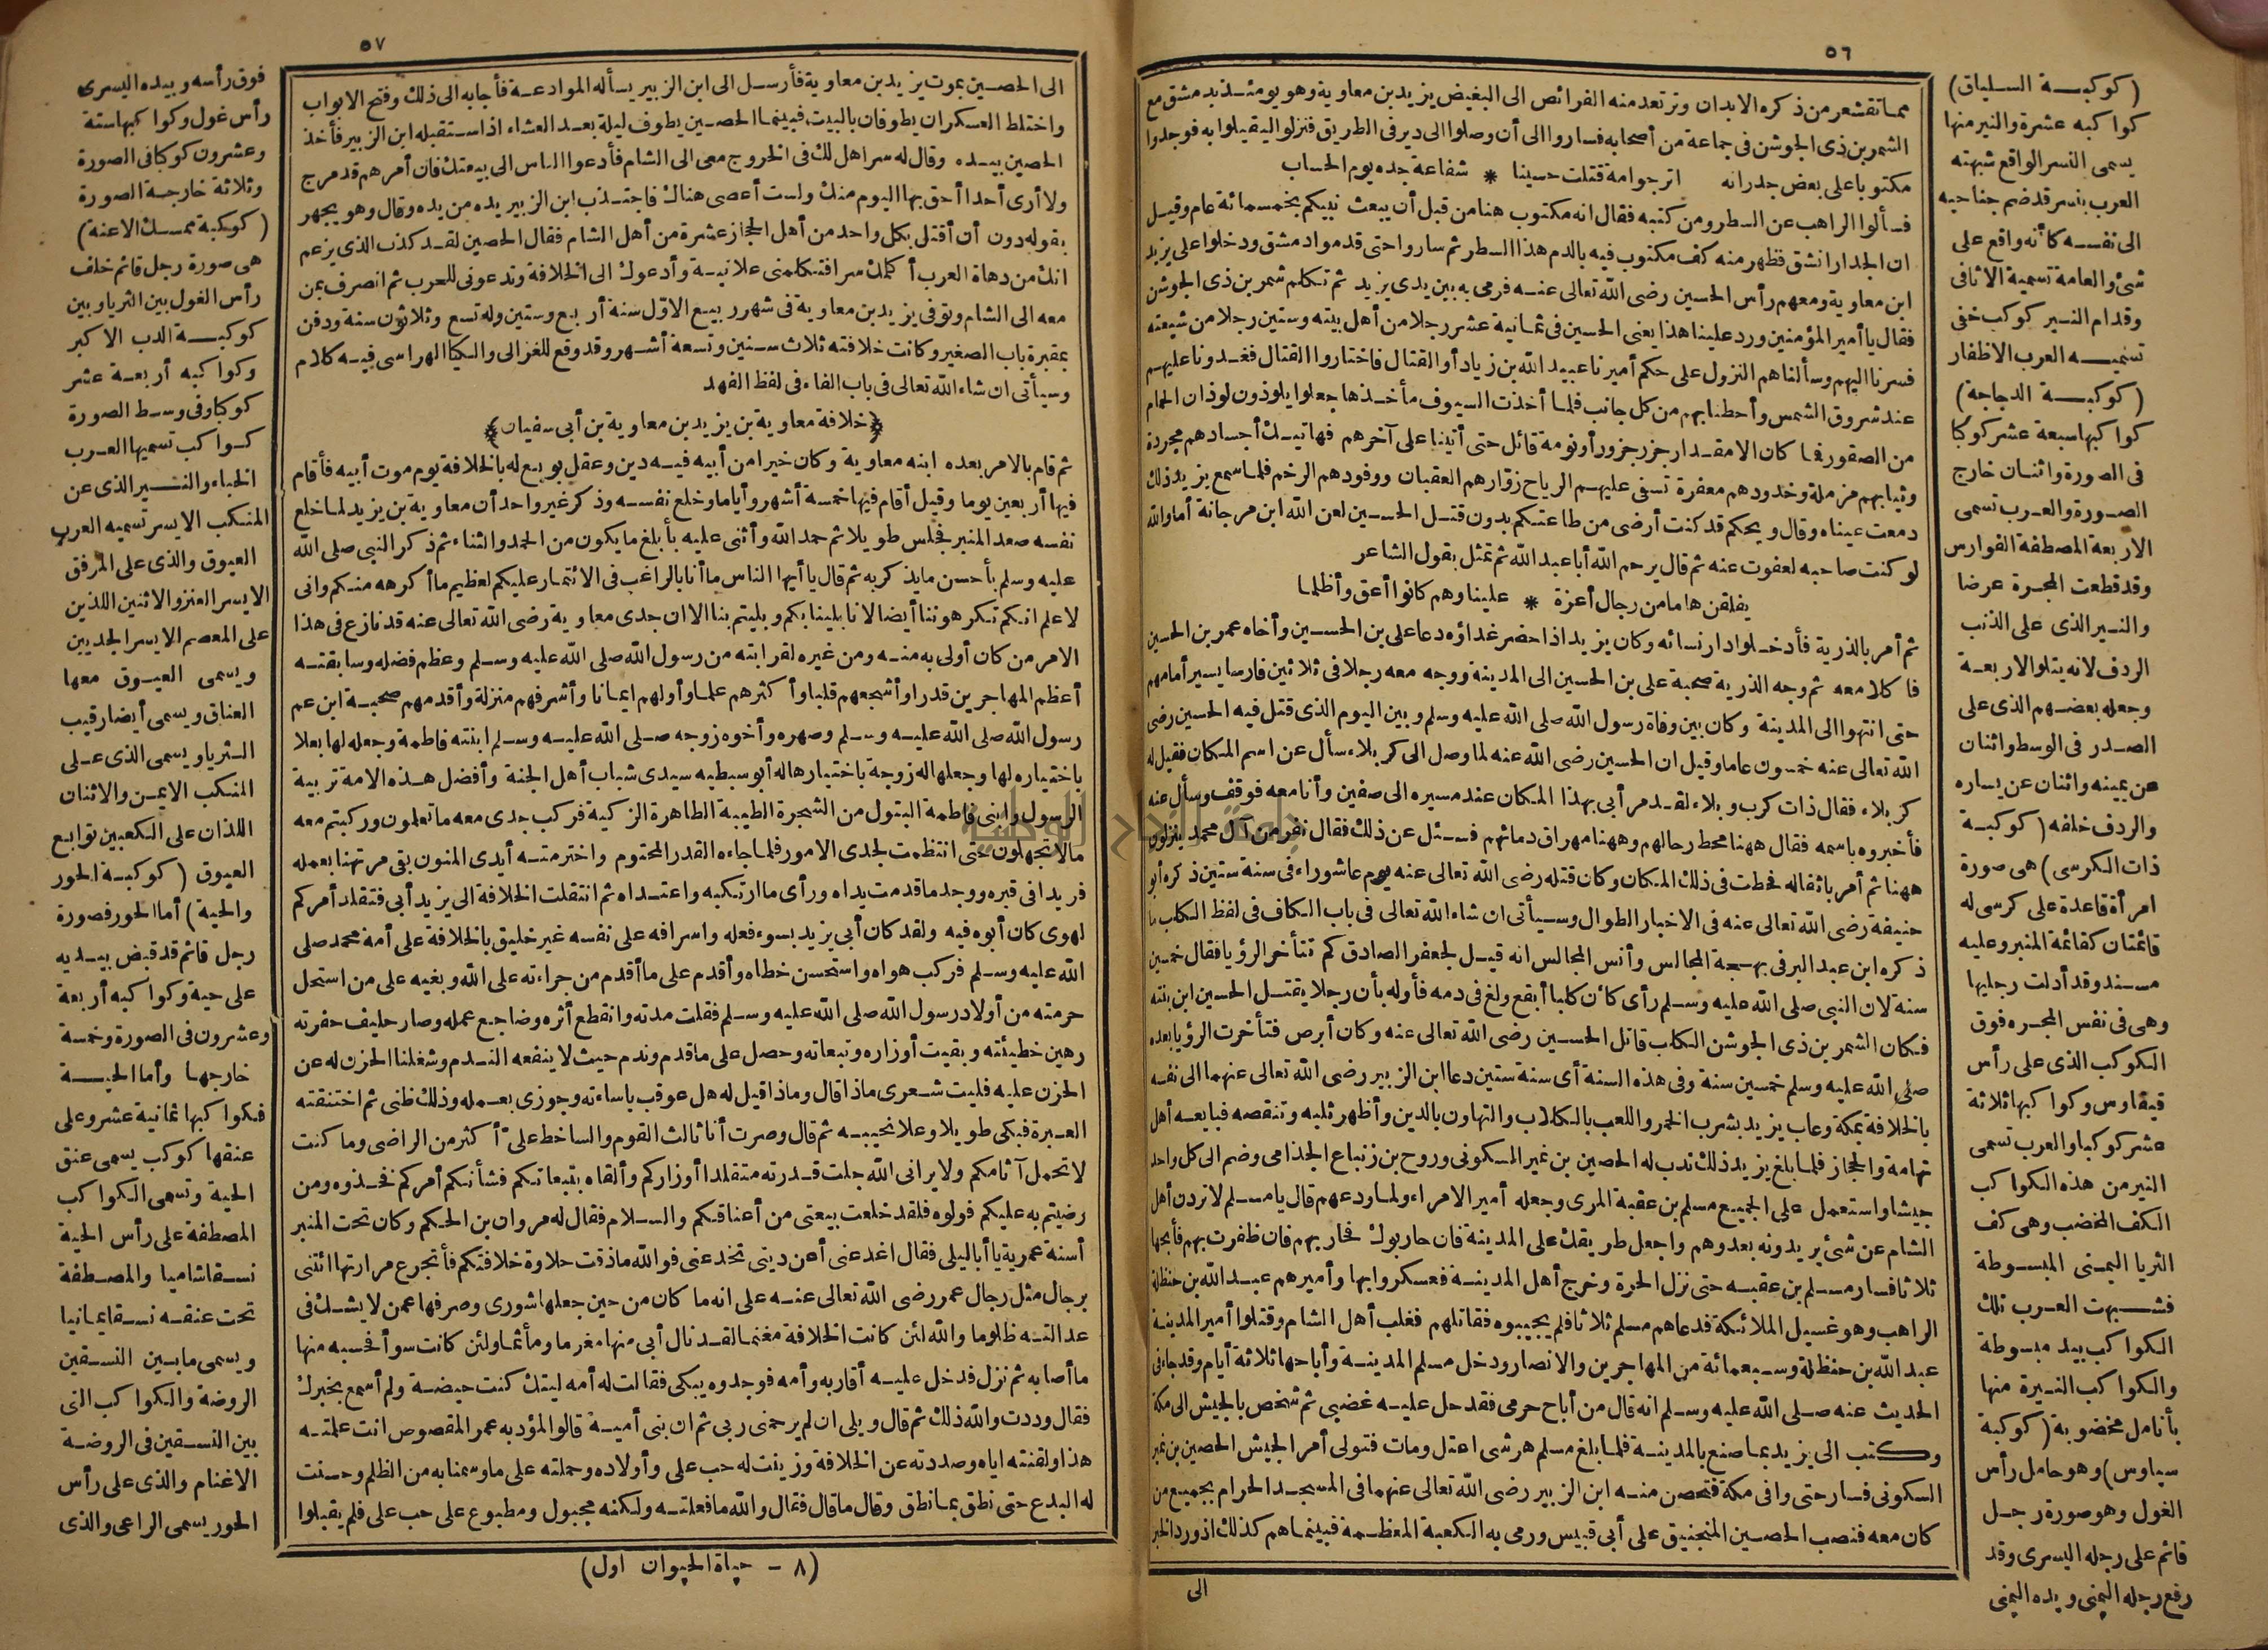 ٥٦
مما تقشعر من ذكره الابدان وترتعد منه الفرائص الى البغيض يزيد بن معاوية وهو يومئذ بدمشق مع
الشمر بن ذى الجوشن فى جماعة من أصحابه فساروا الى أن وصلوا الى دير فى الطريق فنزلوا ليقيلوا به فوجدوا
مكتوبا على بعض جدرانه اترجو امة قتلت حسينا * شفاعة جده يوم الحساب
فسألوا الراهب عن السطر ومن كتبه فقال انه مكتوب هنا من قبل أن يبعث نبيكم بخمسمائة عام وقيل
ان الجدار انشق فظهر منه كف مكتوب فيه بالدم هذا السطر ثم ساروا حتى قدموا دمشق ودخلوا على يزيد
ابن معاوية ومعهم رأس الحسين رضى الله تعالى عنه فرمى به بين يدى يزيد ثم تكلم شمر بن ذى الجوشن
فقال يا أمير المؤمنين ورد علينا هذا يعنى الحسين فى ثمانية عشر رجلا من أهل بيته وستين رجلا من شيعته
فسرنا اليهم وسألناهم النزول على حكم أميرنا عبيد الله بن زياد أو القتال فاختاروا القتال فغدونا عليهم
عند شروق الشمس وأحطنا بهم من كل جانب فلما أخذت السيوف مأخذها جعلوا يلوذون لوذان الحمام
من الصقور فما كان الا مقدار جزر جزور أو نومة قائل حتى أتينا على آخرهم فهاتيك أجسادهم مجردة
وثيابهم مزملة وخدودهم معفرة تسفى عليهم الرياح زوّارهم العقبان ووفودهم الرخم فلما سمع يزيد ذلك
دمعت عيناه وقال ويحكم قد كنت أرضى من طاعتكم بدون قتل الحسين لعن الله ابن مرجانة أما والله
لو كنت صاحبه لعفوت عنه ثم قال يرحم الله أبا عبد الله ثم تمثل بقول الشاعر
يفلقن هاما من رجال أعزة * علينا وهم كانوا أعق وأظلما
ثم أمر بالذرية فأدخلوا دار نسائه وكان يزيد اذا حضر غداؤه دعا على بن الحسين وأخاه عمر بن الحسين
فاكلا معه ثم وجه الذرية صحبة على بن الحسين الى المدينة ووجه معه رجلا فى ثلاثين فارسا يسير أمامهم
حتى انتهوا الى المدينة وكان بين وفاة رسول الله صلى الله عليه وسلم وبين اليوم الذى قتل فيه الحسين رضى
الله تعالى عنه خمسون عاما وقيل ان الحسين رضى الله عنه لما وصل الى كربلاء سأل عن اسم المكان فقيل له
كربلاء فقال ذات كرب وبلاء لقد مر أبى بهذا المكان عند مسيره الى صفين وأنا معه فوقف وسأل عنه
فأخبروه باسمه فقال ههنا محط رحالهم وههنا مهراق دمائهم فسئل عن ذلك فقال نفر من آل محمد ينزلون
ههنا ثم أمر باثقاله فحطت فى ذلك المكان وكان قتله رضى الله تعالى عنه يوم عاشوراء فى سنة ستين ذكره أبو
حنيفة رضى الله تعالى عنه فى الاخبار الطوال وسيأتى ان شاء الله تعالى فى باب الكاف فى لفظ الكلب ما
ذكره ابن عبد البر فى بهجة المجالس وأنس المجالس انه قيل لجعفر الصادق كم تتأخر الرؤيا فقال خمسين
سنة لان النبى صلى الله عليه وسلم رأى كأن كلبا أبقع ولغ فى دمه فأوله بأن رجلا يقتل الحسين ابن بنته
فكان الشمر بن ذى الجوشن الكلب قاتل الحسين رضى الله تعالى عنه وكان أبرص فتأخرت الرؤيا بعده
صلى الله عليه وسلم خمسين سنة وفى هذه السنة أى سنة ستين دعا ابن الزبير رضى الله تعالى عنهما الى نفسه
بالخلافة بمكة وعاب يزيد بشرب الخمر واللعب بالكلاب والتهاون بالدين وأظهر ثلبه وتنقصه فبايعه أهل
تهامة والحجاز فلما بلغ يزيد ذلك ندب له الحصين بن نمير السكونى وروح بن زنباع الجذامى وضم الى كل واحد
جيشا واستعمل على الجميع مسلم بن عقبة المرى وجعله أمير الامراء ولما ودعهم قال يا مسلم لا تردن أهل
الشام عن شئ يريدونه بعدوهم واجعل طريقك على المدينة فان حاربوك فحاربهم فان ظفرت بهم فأبحها
ثلاثا فسار مسلم بن عقبة حتى نزل الحرة وخرج أهل المدينة فعسكروا بها وأميرهم عبد الله بن حنظلة
الراهب وهو غسيل الملائكة فدعاهم مسلم ثلاثا فلم يجيبوه فقاتلهم فغلب أهل الشام وقتلوا أمير المدينة
عبد الله بن حنظلة وسبعمائة من المهاجرين والانصار ودخل مسلم المدينة وأباحها ثلاثة أيام وقد جاء فى
الحديث عنه صلى الله عليه وسلم انه قال من أباح حرمى فقد حل عليه غضبى ثم شخص بالجيش الى مكة
وكتب الى يزيد بما صنع بالمدينة فلما بلغ مسلم هرشى اعتل ومات فتولى أمر الجيش الحصين بن نمير
السكونى فسار حتى وافى مكة فتحصن منه ابن الزبير رضى الله تعالى عنهما فى المسجد الحرام بجميع من
كان معه فنصب الحصين المنجنيق على أبى قبيس ورمى به الكعبة المعظمة فبينما هم كذلك اذ ورد الخبر
الى
(كوكبة السلياق)
كواكبه عشرة والنير منها
يسمى النسر الواقع شبهته
العرب بنسر قد ضم جناحيه
الى نفسه كأنه واقع على
شئ والعامة تسميه الاثافى
وقدام النير كوكب خفى
تسميه العرب الاظفار
(كوكبة الدجاجة)
كواكبها سبعة عشر كوكبا
فى الصورة واثنان خارج
الصورة والعرب تسمى
الاربعة المصطفة الفوارس
وقد قطعت المجرة عرضا
والنير الذى على الذنب
الردف لانه يتلو الاربعة
وجعله بعضهم الذى على
الصدر فى الوسط واثنان
عن يمينه واثنان عن يساره
والردف خلفه (كوكبة
ذات الكرسى) هى صورة
امرأة قاعدة على كرسى له
قائمتان كقائمة المنبر وعليه
مسند وقد أدلت رجليها
وهى فى نفس المجره فوق
الكوكب الذى على رأس
قيقاوس وكواكبها ثلاثة
عشر كوكبا والعرب تسمى
النير من هذه الكواكب
الكف المخضب وهى كف
الثريا اليمنى المبسوطة
فشبهت العرب تلك
الكواكب بيد مبسوطة
والكواكب النيرة منها
بأنامل مخضوبة (كوكبة
سياوس) وهو حامل رأس
الغول وهو صورة رجل
قائم على رجله اليسرى وقد
رفع رجله اليمنى ويده اليمنى
٥٧
الى الحصين بموت يزيد بن معاوية فأرسل الى ابن الزبير يسأله الموادعة فأجابه الى ذلك وفتح الابواب
واختلط العسكران يطوفان بالبيت فبينما الحصين يطوف ليلة بعد العشاء اذ استقبله ابن الزبير فأخذ
الحصين بيده وقال له سرا هل لك فى الخروج معى الى الشام فأدعو الناس الى بيعتك فان أمرهم قد مرج
ولا أرى أحدا أحق بها اليوم منك ولست أعصى هناك فاجتذب ابن الزبير يده من يده وقال وهو يجهر
بقوله دون أن أقتل بكل واحد من أهل الحجاز عشرة من أهل الشام فقال الحصين لقد كذب الذى يزعم
انك من دهاة العرب أكلمك سرا فتكلمنى علانية وأدعوك الى الخلافة وتدعونى للحرب ثم انصرف بمن
معه الى الشام وتوفى يزيد بن معاوية فى شهر ربيع الاوّل سنة أربع وستين وله تسع وثلاثون سنة ودفن
بمقبرة باب الصغير وكانت خلافته ثلاث سنين وتسعة أشهر وقد وقع للغزالى والكيا الهراسى فيه كلام
وسيأتى ان شاء الله تعالى فى باب الفاء فى لفظ الفهد
﴿خلافة معاوية بن يزيد بن معاوية بن أبى سفيان﴾
ثم قام بالامر بعده ابنه معاوية وكان خيرا من أبيه فيه دين وعقل بويع له بالخلافة يوم موت أبيه فأقام
فيها أربعين يوما وقيل أقام فيها خمسة أشهر وأياما وخلع نفسه وذكر غير واحد أن معاوية بن يزيد لما خلع
نفسه صعد المنبر فجلس طويلا ثم حمد الله وأثنى عليه بأبلغ ما يكون من الحمد والثناء ثم ذكر النبى صلى الله
عليه وسلم بأحسن ما يذكر به ثم قال يا أيها الناس ما أنا بالراغب فى الائتمار عليكم لعظيم ما أكرهه منكم وانى
لاعلم انكم تكرهوننا أيضا لانا بلينا بكم وبليتم بنا الا ان جدى معاوية رضى الله تعالى عنه قد نازع فى هذا
الامر من كان أولى به منه ومن غيره لقرابته من رسول الله صلى الله عليه وسلم وعظم فضله وسابقته
أعظم المهاجرين قدرا وأشجعهم قلبا وأكثرهم علما وأولهم ايمانا وأشرفهم منزلة وأقدمهم صحبة ابن عم
رسول الله صلى الله عليه وسلم وصهره وأخوه زوجه صلى الله عليه وسلم ابنته فاطمة وجعله لها بعلا
باختياره لها وجعلها له زوجة باختيارها له أبو سبطيه سيدى شباب أهل الجنة وأفضل هذه الامة تربية
الرسول وابنى فاطمة البتول من الشجرة الطيبة الطاهرة الزكية فركب جدى معه ما تعلمون وركبتم معه
ما لا تجهلون حتى انتظمت لجدى الامور فلما جاءه القدر المحتوم واخترمته أيدى المنون بقى مرتهنا بعمله
فريدا فى قبره ووجد ما قدمت يداه ورأى ما ارتكبه واعتداه ثم انتقلت الخلافة الى يزيد أبى فتقلد أمركم
لهوى كان أبوه فيه ولقد كان أبى يزيد بسوء فعله واسرافه على نفسه غير خليق بالخلافة على أمة محمد صلى
الله عليه وسلم فركب هواه واستحسن خطاه وأقدم على ما أقدم من جراءته على الله وبغيه على من استحل
حرمته من أولاد رسول الله صلى الله عليه وسلم فقلت مدته وانقطع أثره وضاجع عمله وصار حليف حفرته
رهين خطيئته وبقيت أوزاره وتبعاته وحصل على ما قدم وندم حيث لا ينفعه الندم وشغلنا الحزن له عن
الحزن عليه فليت شعرى ماذا قال وماذا قيل له هل عوقب باساءته وجوزى بعمله وذلك ظنى ثم اختنقته
العبرة فبكى طويلا وعلا نحيبه ثم قال وصرت أنا ثالث القوم والساخط علىّ أكثر من الراضى وما كنت
لاتحمل آثامكم ولا يرانى الله جلت قدرته متقلدا أوزاركم وألقاه بتبعاتكم فشأنكم أمركم فخذوه ومن
رضيتم به عليكم فولوه فلقد خلعت بيعتى من أعناقكم والسلام فقال له مروان بن الحكم وكان تحت المنبر
أسنة عمرية يا أبا ليلى فقال اغد عنى أعن دينى تخدعنى فوالله ما ذقت حلاوة خلافتكم فأتجرع مرارتها ائتنى
برجال مثل رجال عمر رضى الله تعالى عنه على انه ما كان من حين جعلها شورى وصرفها عمن لا يشك فى
عدالته ظلوما والله لئن كانت الخلافة مغنما لقد نال أبى منها مغرما ومأثما ولئن كانت سوأ فحسبه منها
ما أصابه ثم نزل فدخل عليه أقاربه وأمه فوجدوه يبكى فقالت له أمه ليتك كنت حيضة ولم أسمع بخبرك
فقال وددت والله ذلك ثم قال ويلى ان لم يرحمنى ربى ثم ان بنى أمية قالوا لمؤدبه عمر المقصوص انت علمته
هذا ولقنته اياه وصددته عن الخلافة وزينت له حب على وأولاده وحملته على ما وسمنا به من الظلم وحسنت
له البدع حتى نطق بما نطق وقال ما قال فقال والله ما فعلته ولكنه مجبول ومطبوع على حب على فلم يقبلوا
(٨ - حياة الحيوان اول)
فوق رأسه وبيده اليسرى
رأس غول وكواكبها ستة
وعشرون كوكبا فى الصورة
وثلاثة خارجة الصورة
(كوكبة ممسك الاعنه)
هى صورة رجل قائم خلف
رأس الغول بين الثريا وبين
كوكبة الدب الاكبر
وكواكبه أربعة عشر
كوكبا وفى وسط الصورة
كواكب تسميها العرب
الخباء والنير الذى عن
المنكب الايسر تسميه العرب
العيوق والذى على المرفق
الايسر العنز والاثنين اللذين
على المعصم الايسر الجديين
ويسمى العيوق معها
العناق ويسمى أيضا رقيب
الثريا ويسمى الذى على
المنكب الايمن والاثنان
اللذان على الكعبين توابع
العيوق (كوكبة الحور
والحية) أما الحور فصورة
رجل قائم قد قبض بيديه
على حية وكواكبه أربعة
وعشرون فى الصورة وخمسة
خارجها وأما الحية
فكواكبها ثمانية عشر وعلى
عنقها كوكب يسمى عنق
الحية وتسمى الكواكب
المصطفة على رأس الحية
نسقا شاميا والمصطفة
تحت عنقه نسقا يمانيا
ويسمى ما بين النسقين
الروضة والكواكب التى
بين النسقين فى الروضة
الاغنام والذى على رأس
الحور يسمى الراعى والذى